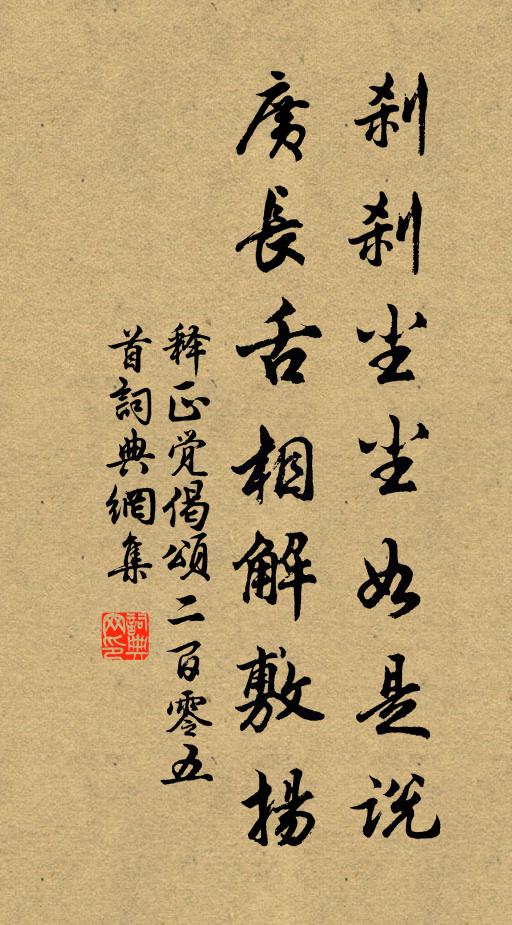 刹刹尘尘如是说
廣長舌相解敷揚
释正觉偈頌二百零五
首詞典網集
詞典网印